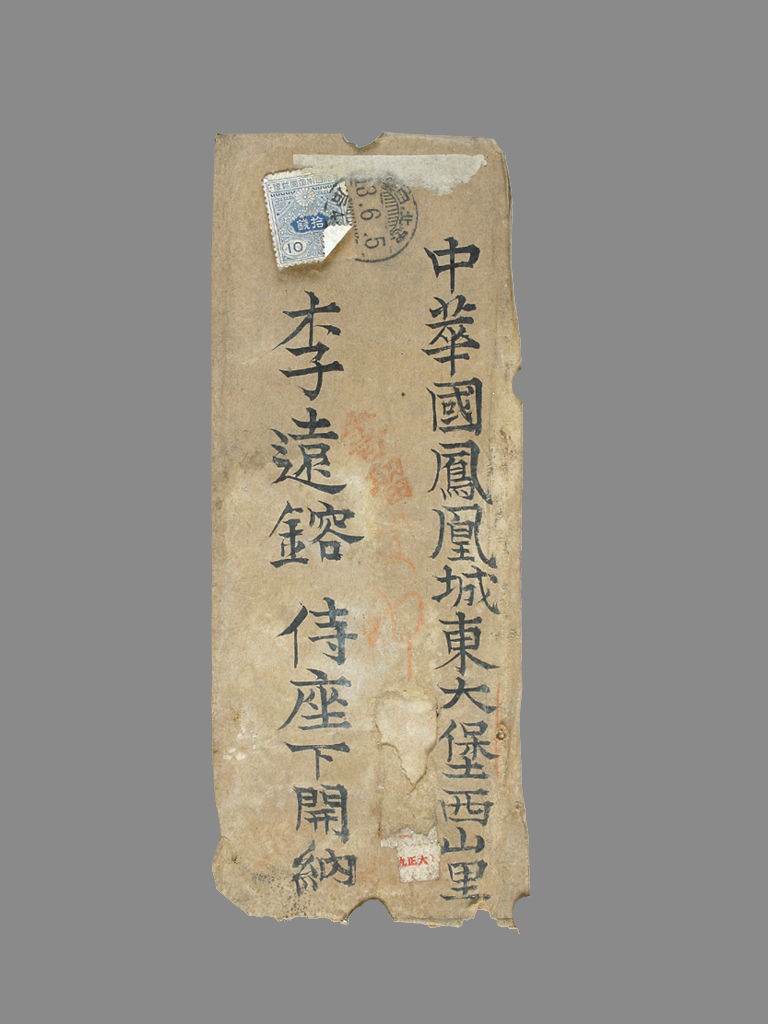 中華國鳳凰城東大堡西山里
李遠鎔 侍座下開納
拾錢
10
3.6.5
書留
大正九